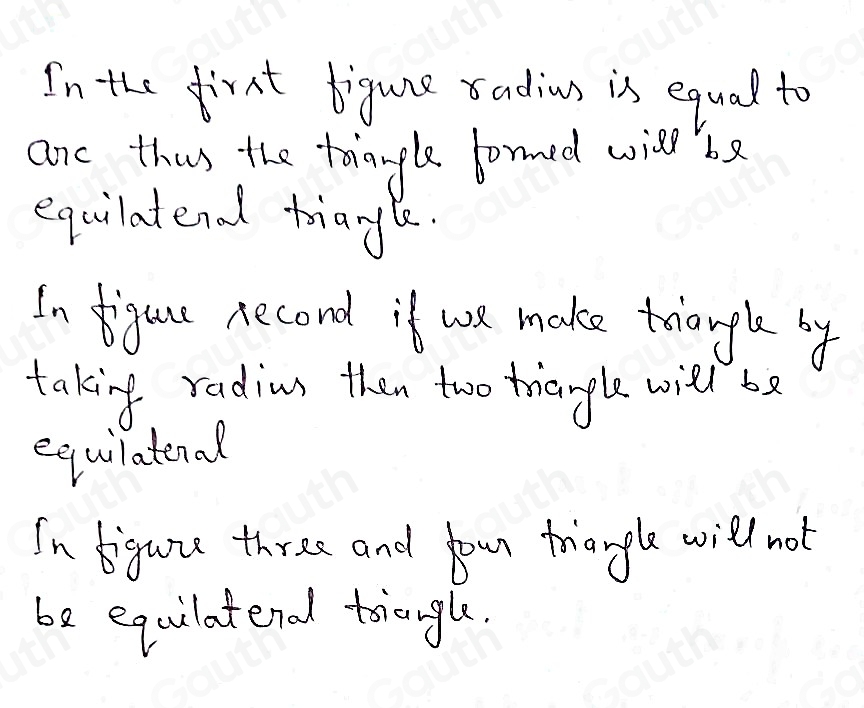 In the first figure radius is equal to
arc thus the triangle formed will be
equilateral triangle.
In figure second if we make triangle by
taking radius then two triangle will be
equilateral
In figure three and four triangle will not
be equilateral triangle.